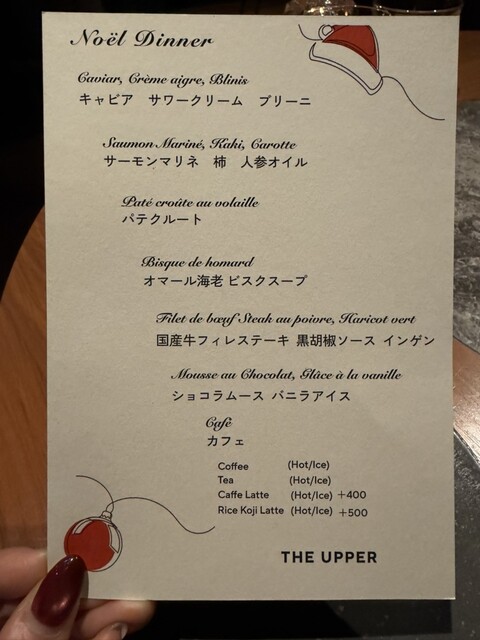 Noël Dinner
Caviar, Crème aigre, Blinis
キャビア サワークリーム ブリーニ
Saumon Mariné, Kaki, Carotte
サーモンマリネ 柿 人参オイル
Paté croûte au volaille
パテクルート
Bisque de homard
オマール海老 ビスクスープ
Filet de bœuf Steak au poivre, Haricot vert
国産牛フィレステーキ 黒胡椒ソース インゲン
Mousse au Chocolat, Glâce à la vanille
ショコラムース バニラアイス
Café
カフェ
Coffee (Hot/Ice)
Tea (Hot/Ice)
Caffe Latte (Hot/Ice) +400
Rice Koji Latte (Hot/Ice) +500
THE UPPER